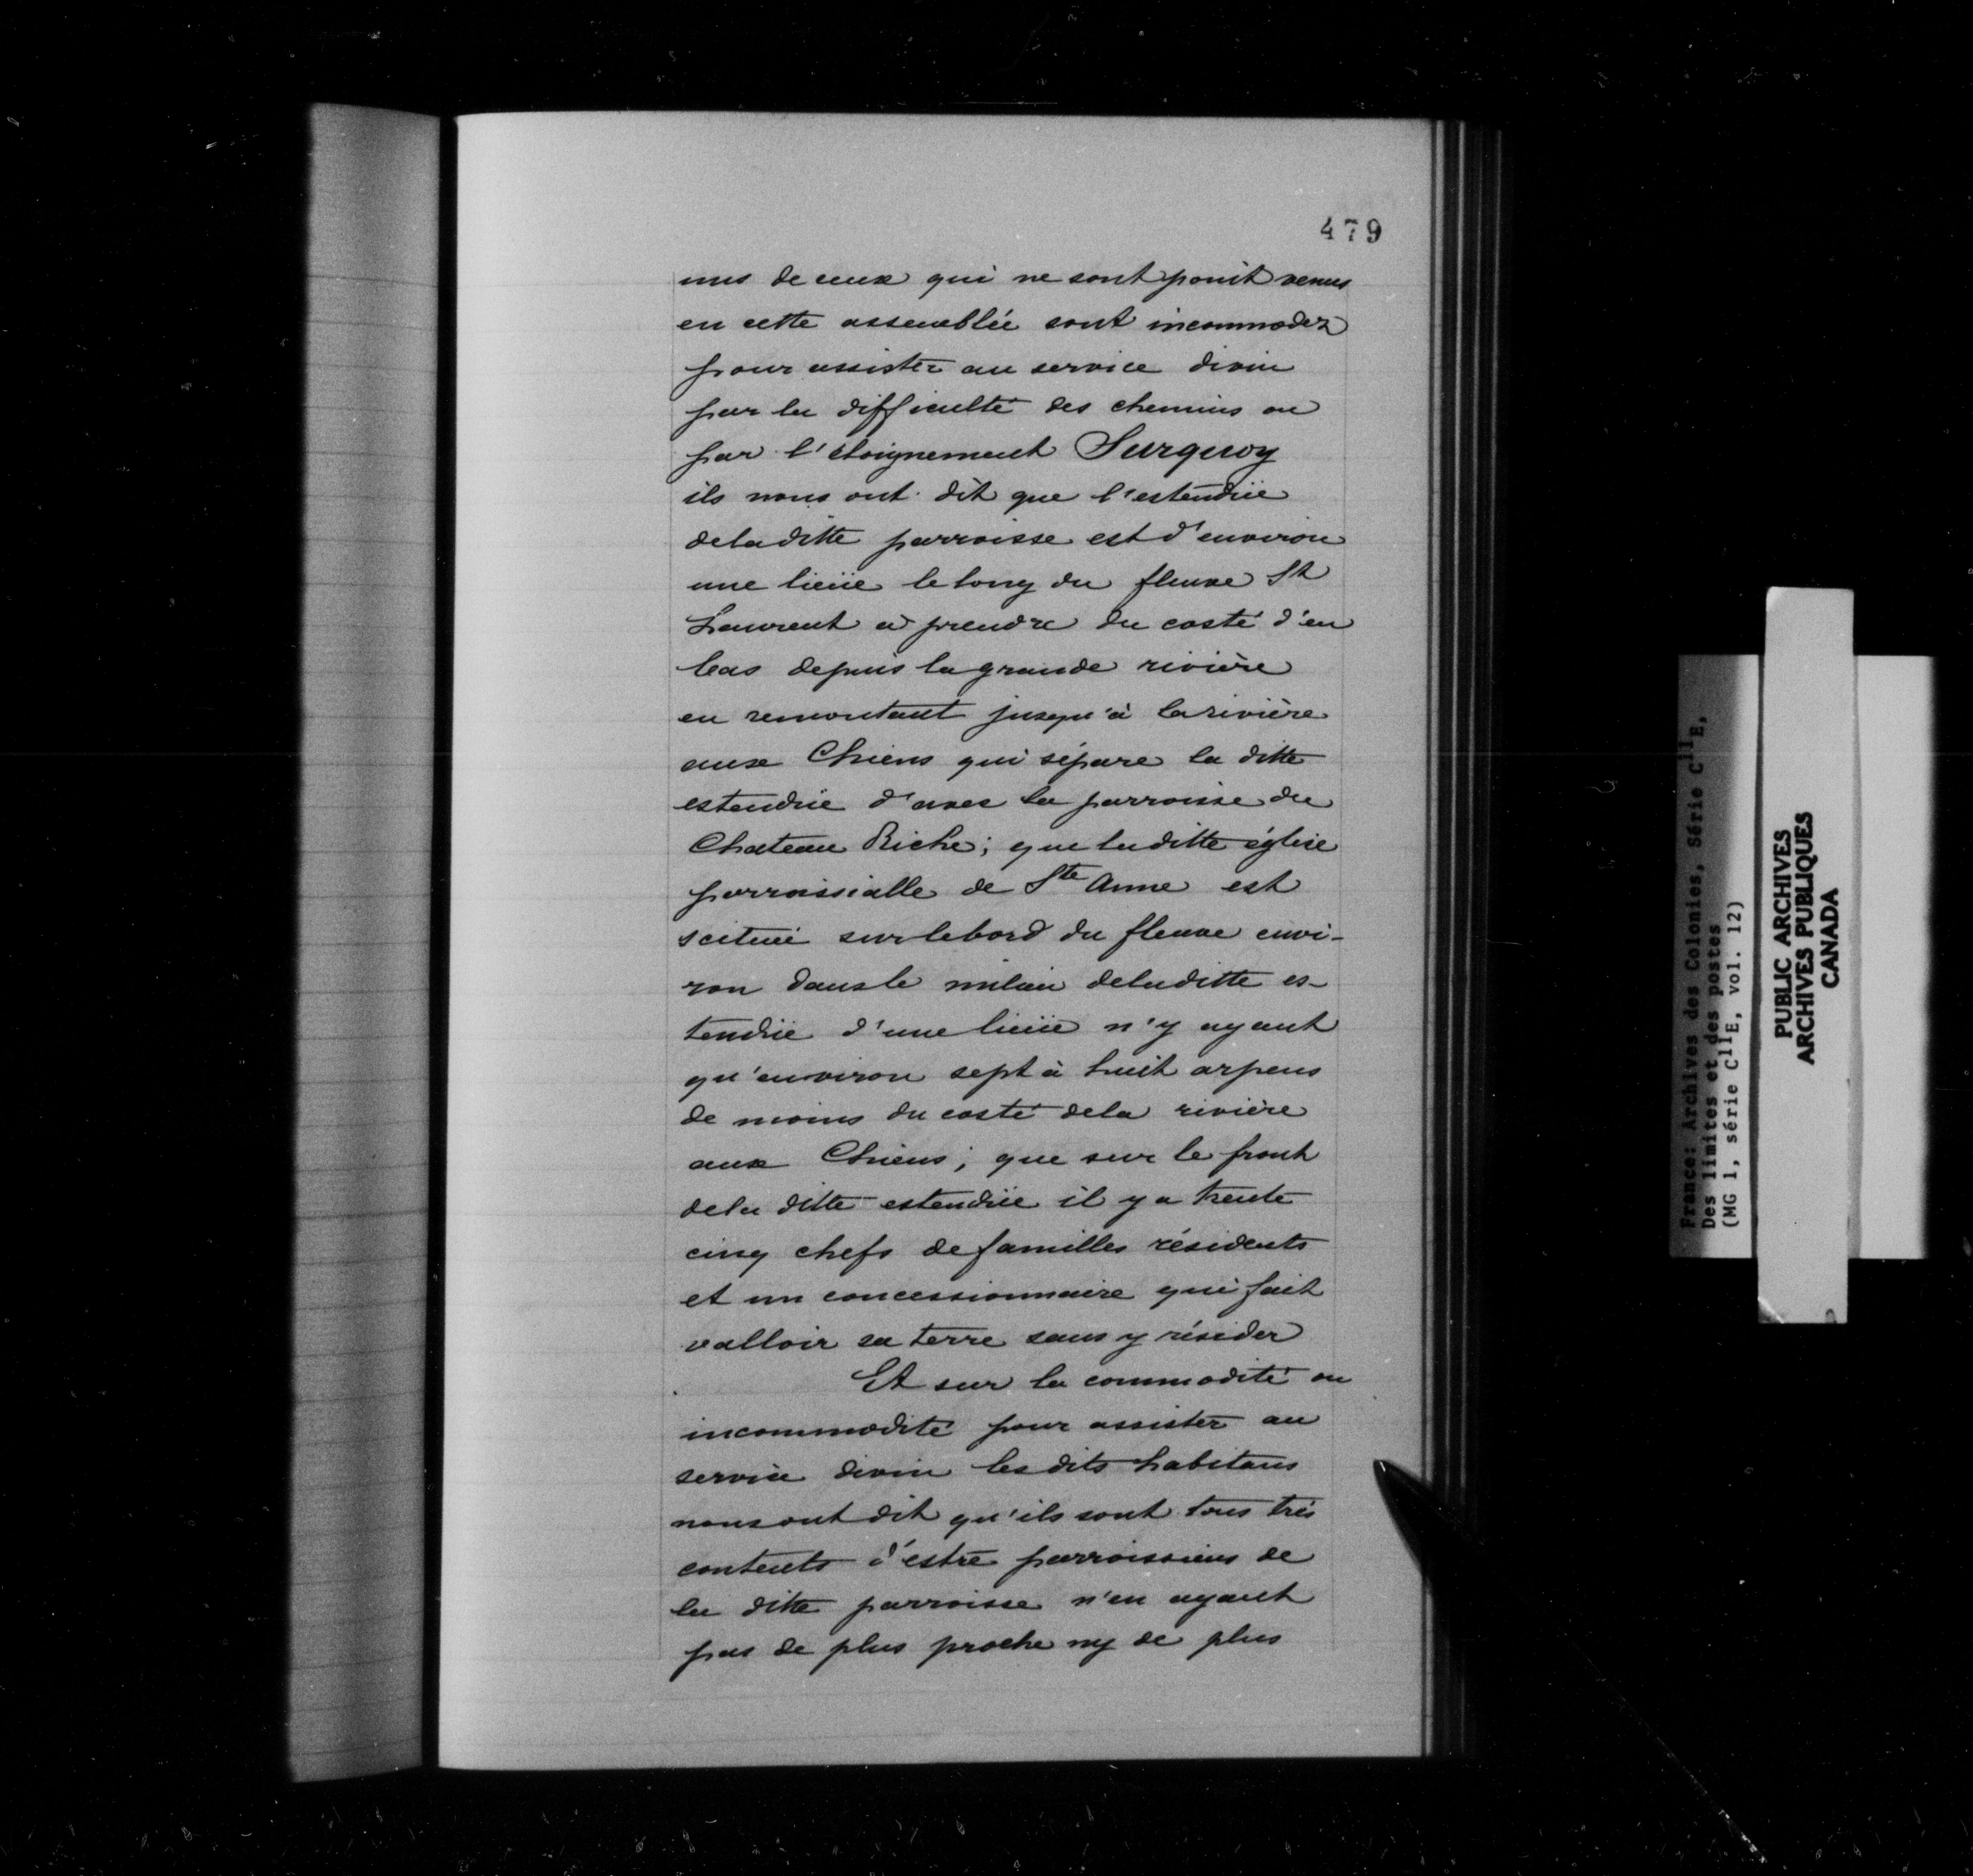 479
uns de ceux qui ne sont point venus
en cette assemblée sont incommodez
pour assister au service divin
par la difficulté des chemins ou
par l'éloignement Surquoy
ils nous ont dit que l'estendüe
deladitte parroisse est d'environ
une lieüe le long du fleuve St
Laurent à prendre du costé d'en
bas depuis la grande rivière
en remontant jusqu'à la rivière
aux Chiens qui sépare la ditte
estendüe d'avec la parroisse du
Chateau Riche; que laditte église
parroissialle de Ste Anne est
scituée sur le bord du fleuve envi-
ron dans le milieu deladitte es-
tendüe d'une lieüe n'y ayant
qu'environ sept à huit arpens
de moins du costé dela rivière
aux Chiens; que sur le front
dela ditte estendüe il y a trente
cinq chefs de familles résidents
et un concessionnaire qui fait
valloir sa terre sans y résider
Et sur la commodité ou
incommodité pour assister au
service divin les dits habitans
nous ont dit qu'ils sont tous très
contents d'estre parroissiens de
la ditte parroisse n'en ayant
pas de plus proche ny de plus
France: Archives des Colonies, Série C11E,
Des limites et des postes
(MG 1, série C11E, vol. 12)
PUBLIC ARCHIVES
ARCHIVES PUBLIQUES
CANADA